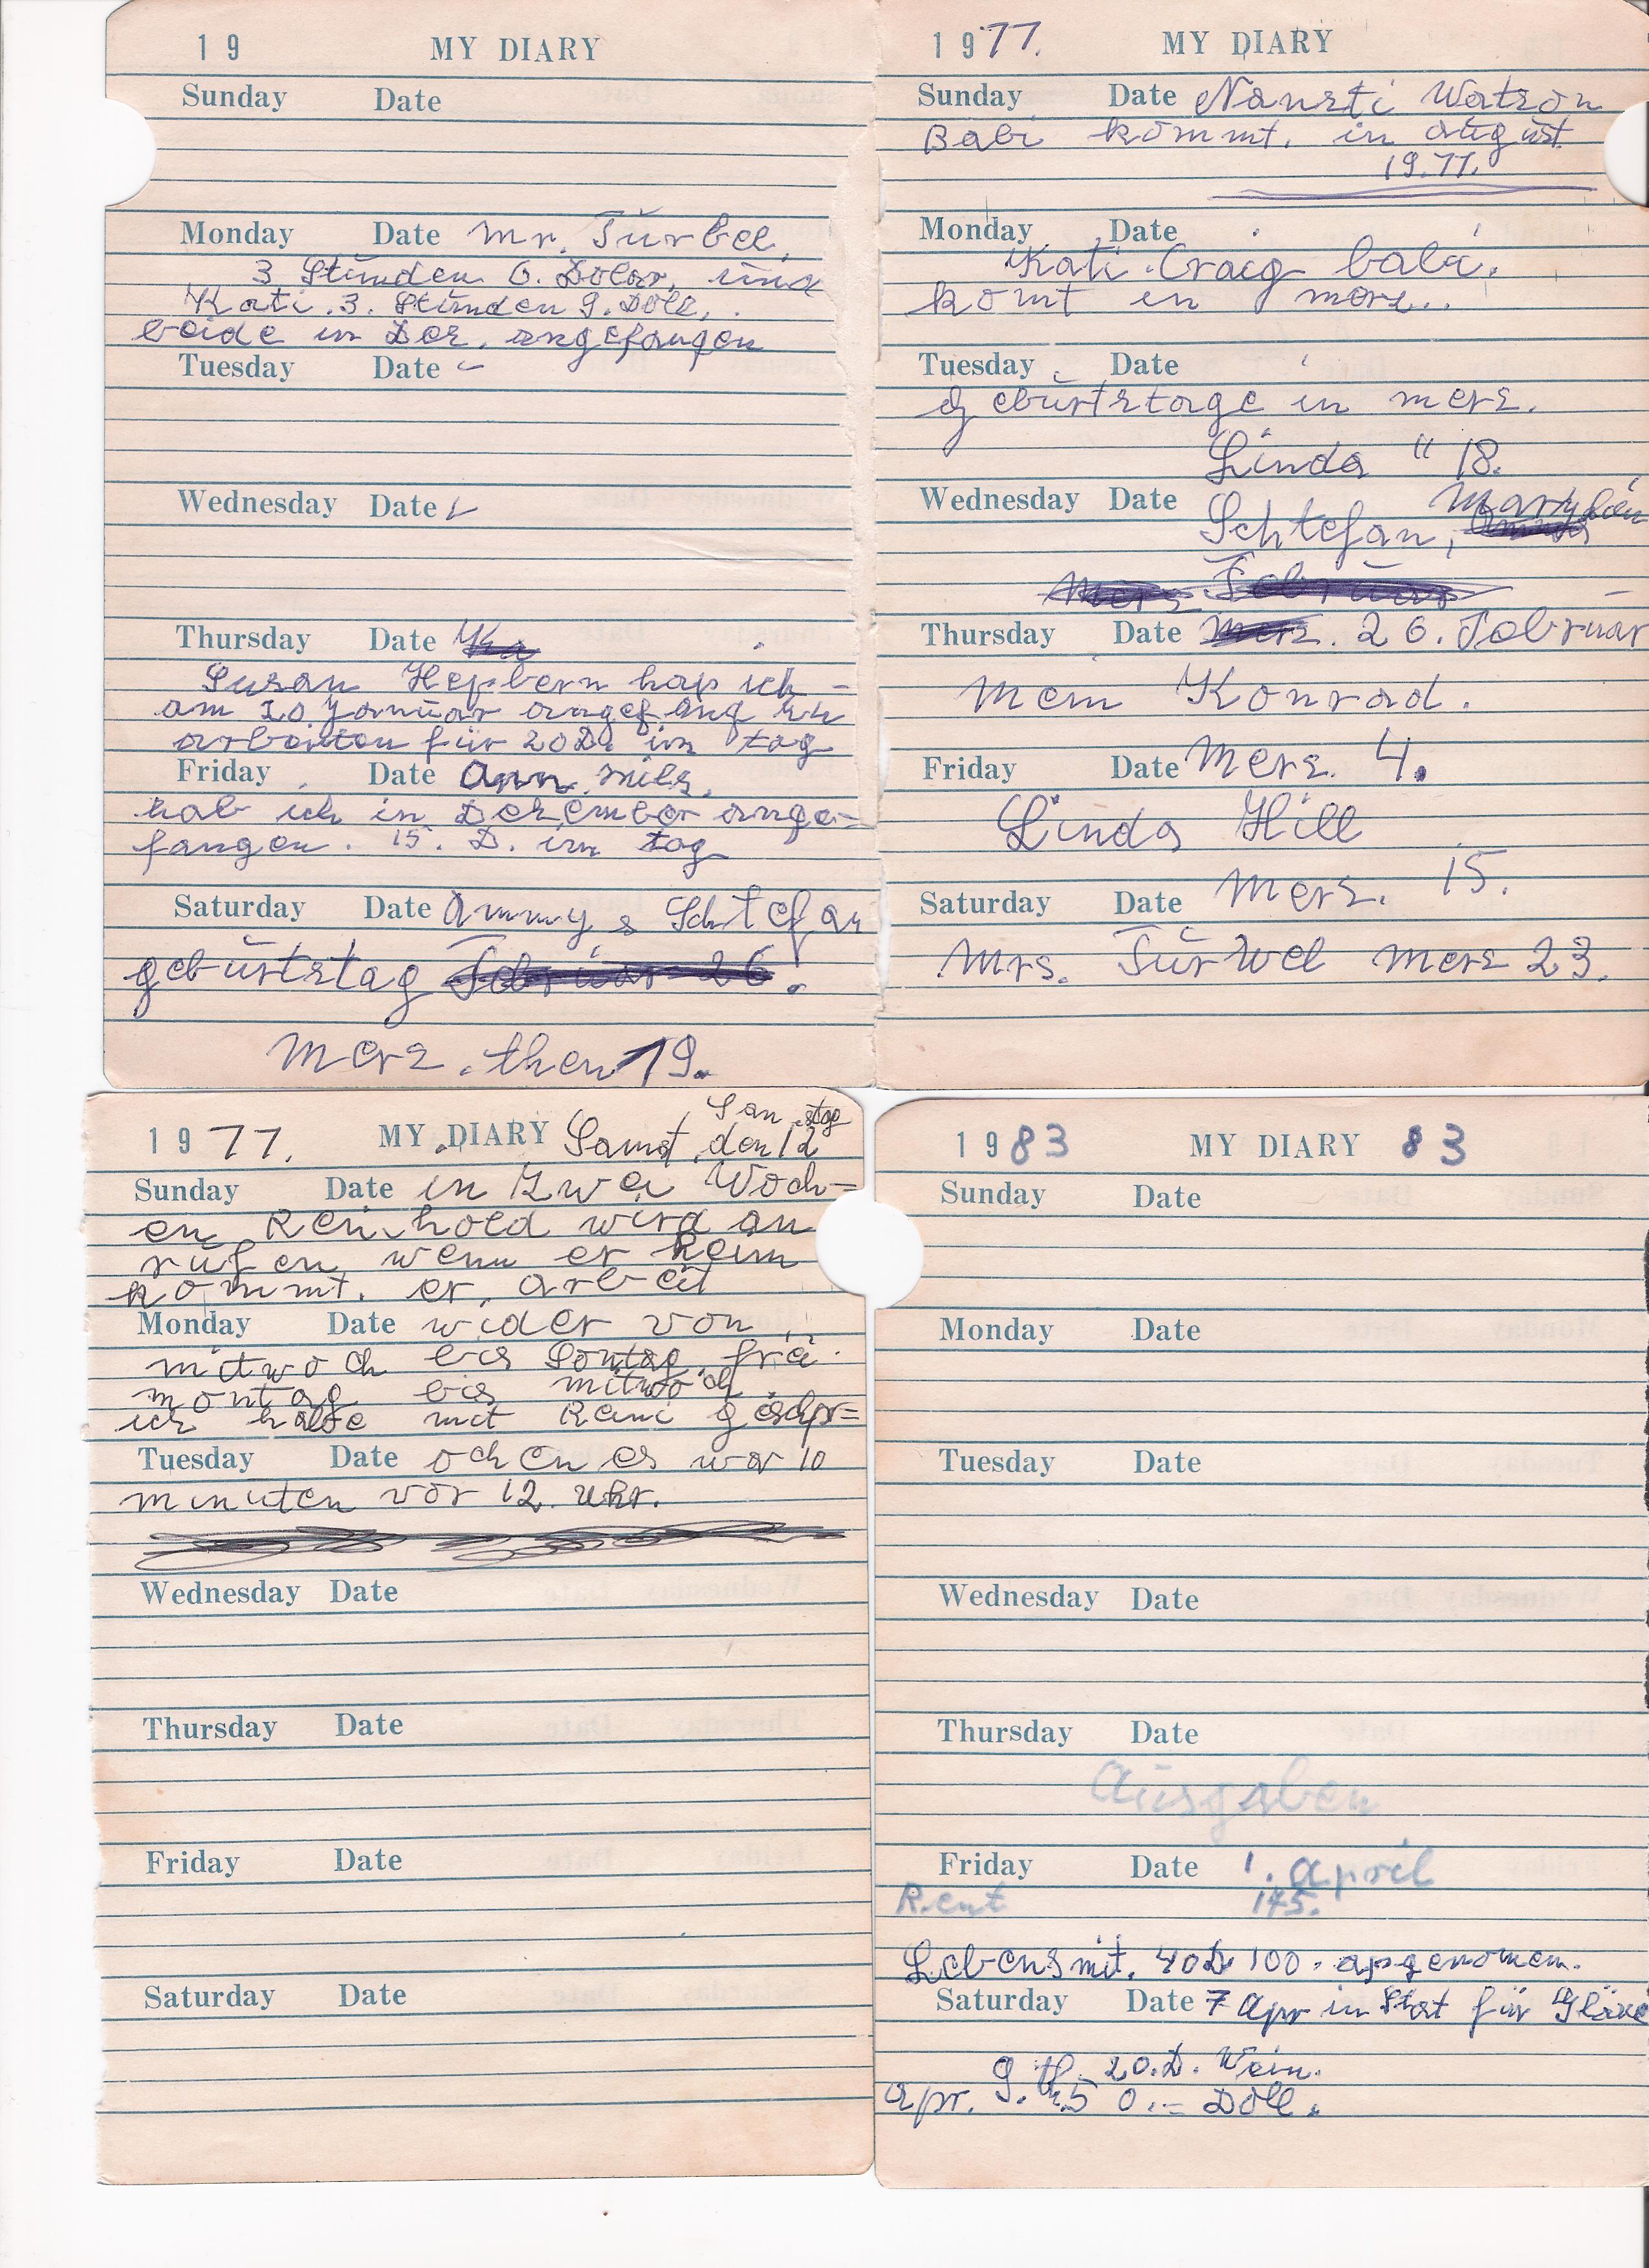 19 MY DIARY
Sunday Date
Monday Date Mr. Türbel,
3 Stunden 6. Dolar, und
Kati. 3. Stunden 9. Doll,.
beide in Dez. angefangen
Tuesday Date
Wednesday Date
Thursday Date
Susan Hepbern hap ich
am 10 Januar angefang zu
arbeiten für 20 D. im tag
Friday Date Ann. Mils,
hab ich in Dezember ange=
fangen. 15. D. im tag
Saturday Date Ammy & Schtefan
geburtztag Februar 26.
Merz. then 19.
1977. MY DIARY
Sunday Date Nanzti Watzon
Babi kommt. in august
19.77.
Monday Date
Kati. Craig babi.
komt in merz..
Tuesday Date
geburtztage in merz.
Linda " 18.
Wednesday Date Schtefan,
Merz Februar
Thursday Date Merz. 26. Februar
Mein Konrad.
Friday Date Merz. 4.
Linda Hill
Saturday Date Merz. 15.
Mrs. Türwel merz 23.
1977. MY DIARY Samst. den 12
Sunday Date in Zwei Woch=
en Reinhold wird an
rufen wenn er heim
kommt. er arbeit
Monday Date wider von
mitwoch bis Sontag, frei
montag bis mitwoch
ich habe mit Reini geschpr=
Tuesday Date ochen es war 10
minuten vor 12. Uhr.
Wednesday Date
Thursday Date
Friday Date
Saturday Date
1983 MY DIARY 83
Sunday Date
Monday Date
Tuesday Date
Wednesday Date
Thursday Date
Ausgaben
Friday Date 1. April
Rent 175.
Lebensmit. 40 D. 100. apgenomen.
Saturday Date 7 Apr in Stat für
9. th. 20. D. Wein.
Apr. 9. th. 50.= Doll.